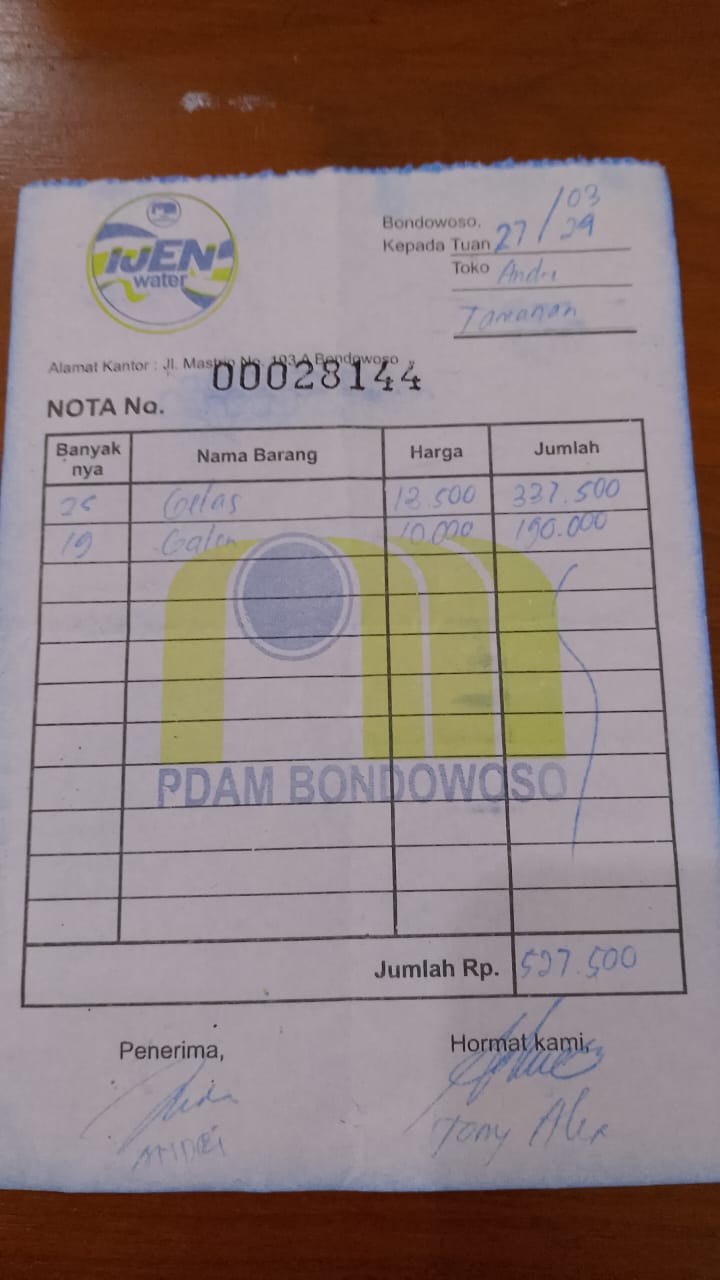 IJEN
water
Bondowoso, 27/03
Kepada Tuan 24
Toko Andri
Tamanan
Alamat Kantor : Jl. Mastrip No. 193 A Bondowoso
00028144
NOTA No.
Banyak nya Nama Barang Harga Jumlah
25 Gelas 13.500 337.500
19 Galon 10.000 190.000
PDAM BONDOWOSO
Jumlah Rp. 527.500
Penerima, Hormat kami,
Tony Alex